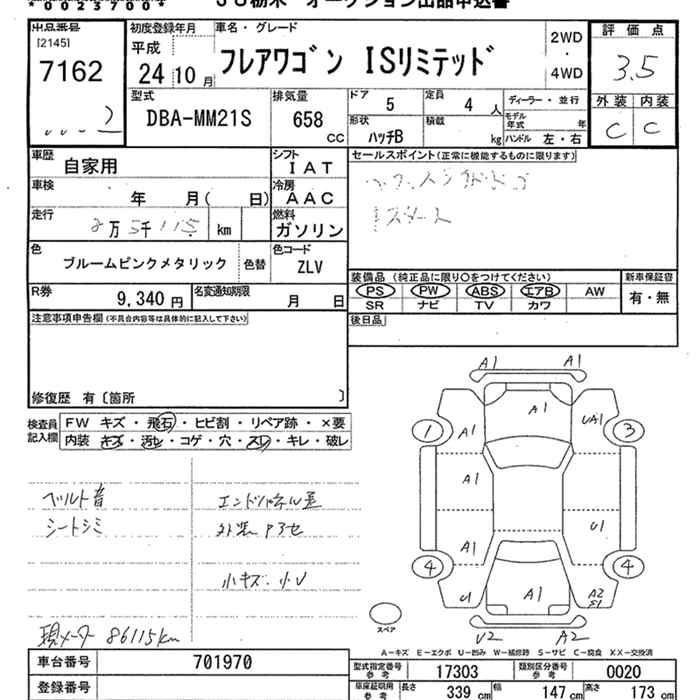 *00237004*
JU栃木 オークション出品申込書
出品番号
[2145]
7162
初度登録年月
平成
24 10 月
車名・グレード
フレアワゴン ISリミテッド
2WD
・
4WD
評価点
3.5
外装 内装
C C
型式
DBA-MM21S
排気量
658
CC
ドア 5
定員 4 人
形状 ハッチB
積載 kg
ディーラー・並行
モデル年式 年
ハンドル 左・右
車歴 自家用
シフト IAT
車検 年 月( 日)
冷房 AAC
走行 8万 5千115 km
燃料 ガソリン
セールスポイント(正常に機能するものに限ります)
色 ブルームピンクメタリック 色替
色コード ZLV
R券 9,340 円
名変通知期限 月 日
装備品 (純正品に限り○をつけてください)
PS PW ABS エアB AW
SR ナビ TV カワ
新車保証書
有・無
後日品
注意事項申告欄 (不具合内容等は具体的に記入して下さい)
修復歴 有〔箇所 〕
検査員記入欄
FW キズ・飛石・ヒビ割・リペア跡・×要
内装 キズ・汚レ・コゲ・穴・スレ・キレ・破レ
ベルト音
シートシミ
エンドパネル歪
外装色アセ
小キズ・小U
現メーター 86115km
A1 A1
A1
1 A1 UA1 3
A1
A1 U1
4 4
U1 A1 A2
S1
U2 A2
スペア
A-キズ E-エクボ U-凹み W-補修跡 S-サビ C-腐食 XX-交換済
車台番号 701970
登録番号
型式指定番号 参考 17303
類別区分番号 参考 0020
車庫証明用 参考 長さ 339 cm 幅 147 cm 高さ 173 cm